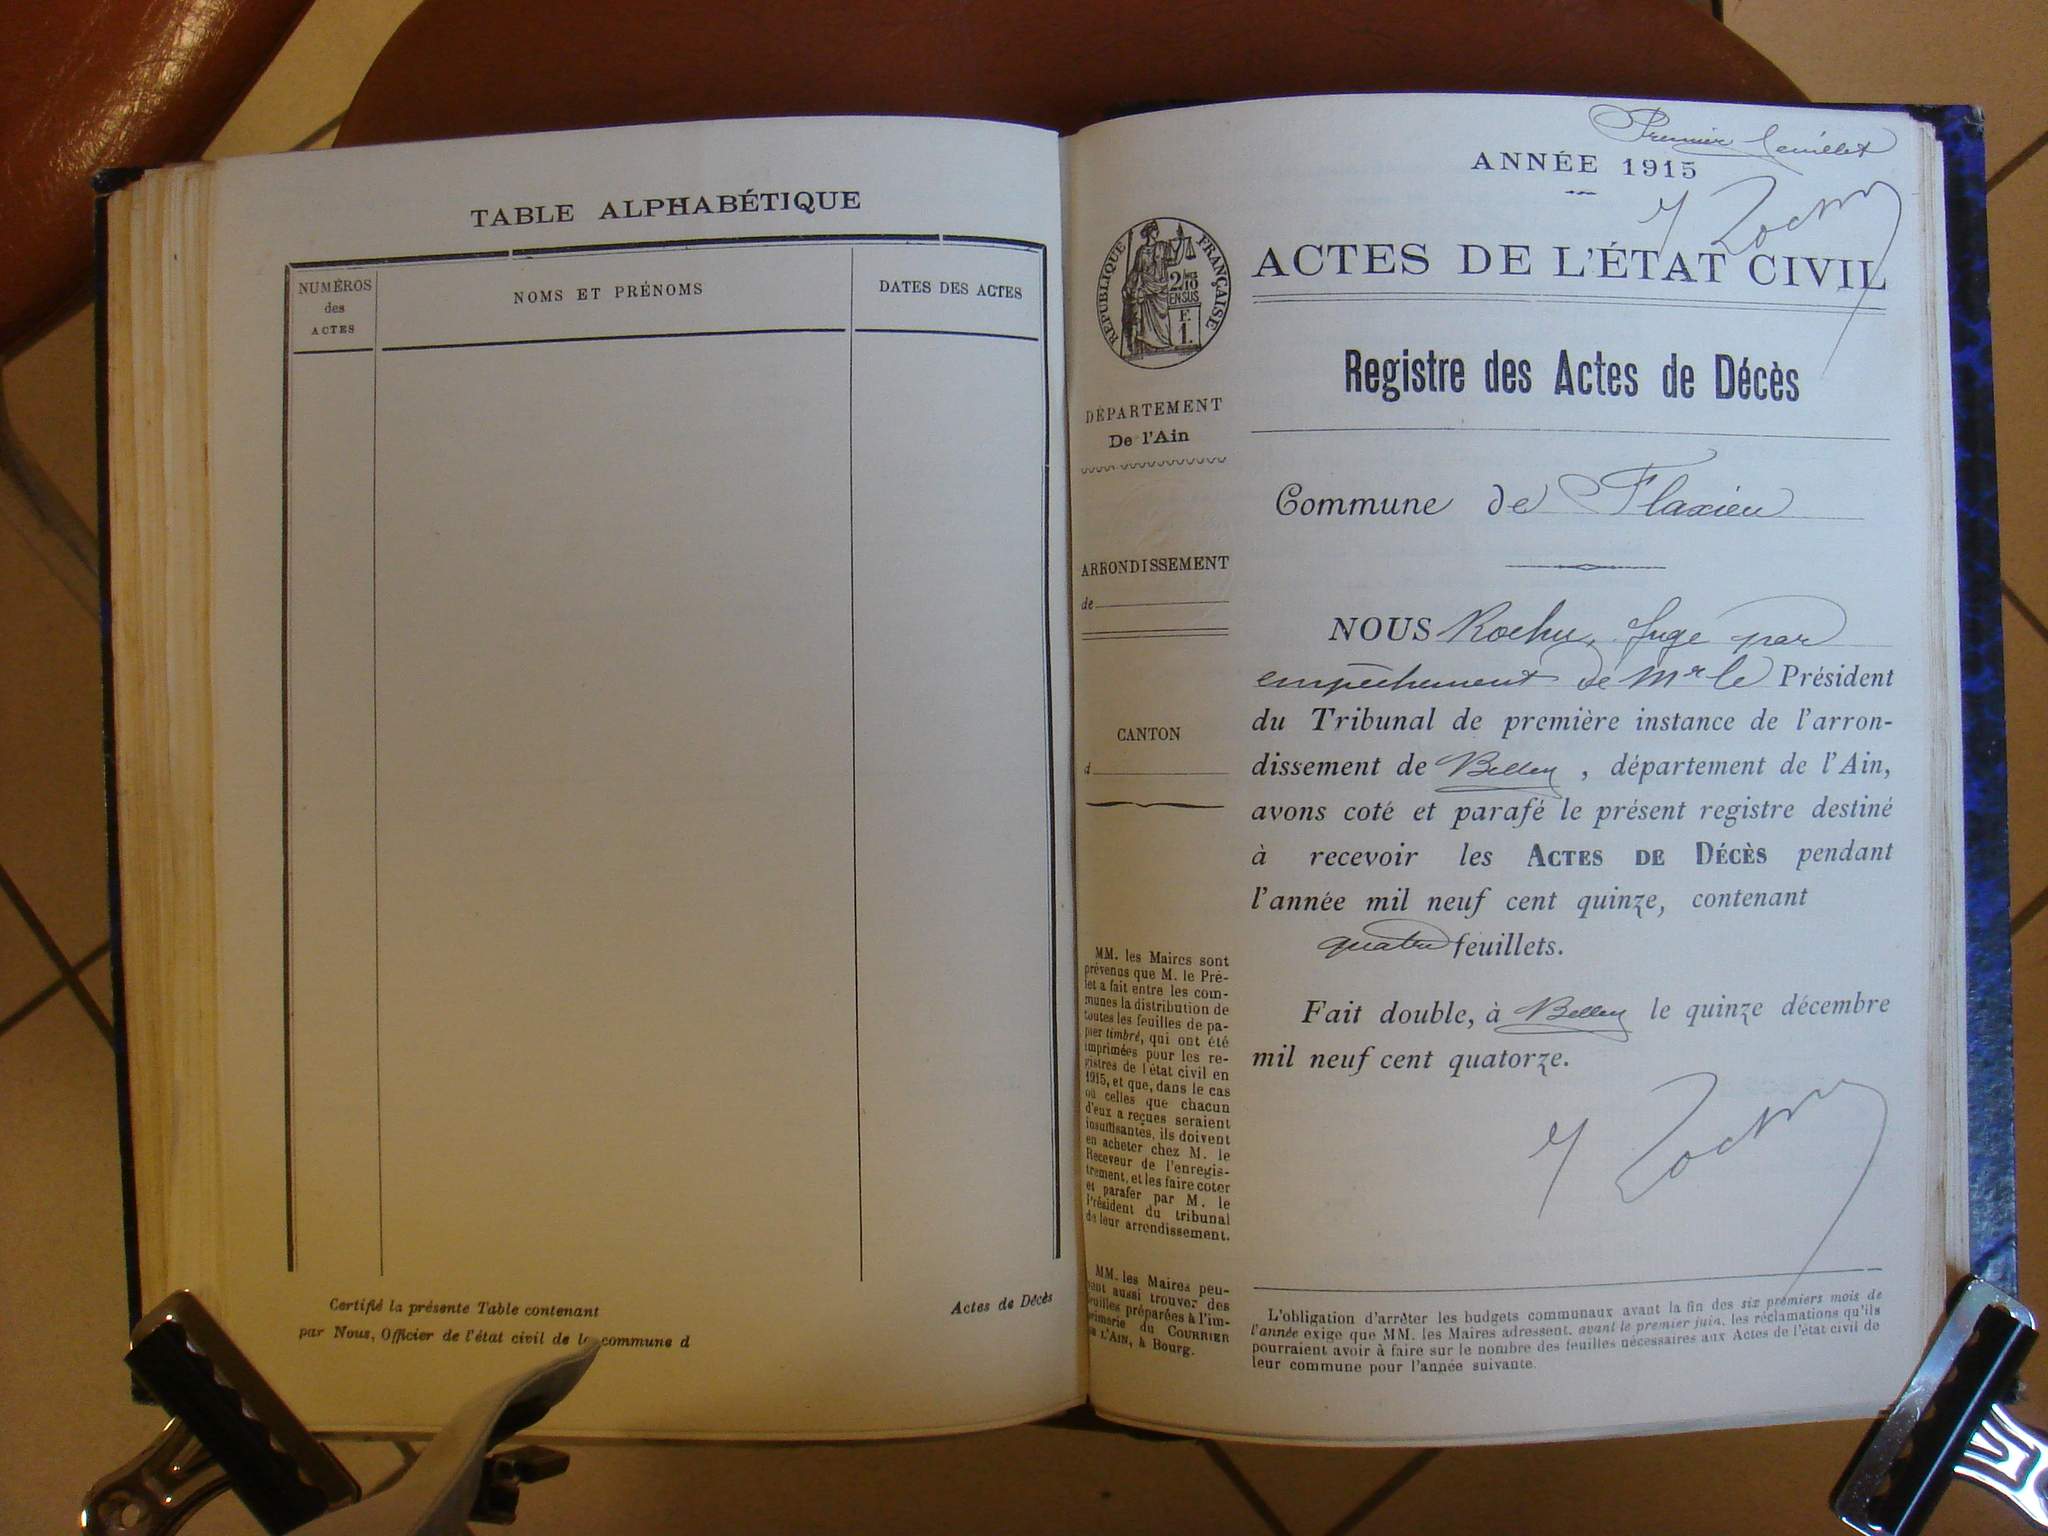 TABLE ALPHABÉTIQUE
NUMÉROS
des
ACTES
NOMS ET PRÉNOMS
DATES DES ACTES
Certifié la présente Table contenant
par Nous, Officier de l'état civil de la commune d
Actes de Décès
Premier feuillet
ANNÉE 1915
RÉPUBLIQUE FRANÇAISE
2/10
EN SUS
F.
1.
ACTES DE L'ÉTAT CIVIL
Registre des Actes de Décès
DÉPARTEMENT
De l'Ain
Commune de Flaxieu
ARRONDISSEMENT
de
CANTON
d
NOUS Rochu, Juge par
empêchement de Mr le Président
du Tribunal de première instance de l'arron-
dissement de Belley, département de l'Ain,
avons coté et parafé le présent registre destiné
à recevoir les ACTES DE DÉCÈS pendant
l'année mil neuf cent quinze, contenant
quatre feuillets.
Fait double, à Belley le quinze décembre
mil neuf cent quatorze.
MM. les Maires sont
prévenus que M. le Pré-
fet a fait entre les com-
munes la distribution de
toutes les feuilles de pa-
pier timbré, qui ont été
imprimées pour les re-
gistres de l'état civil en
1915, et que, dans le cas
où celles que chacun
d'eux a reçues seraient
insuffisantes, ils doivent
en acheter chez M. le
Receveur de l'enregis-
trement, et les faire coter
et parafer par M. le
Président du tribunal
de leur arrondissement.
MM. les Maires peu-
vent aussi trouver des
feuilles préparées à l'im-
primerie du COURRIER
DE L'AIN, à Bourg.
L'obligation d'arrêter les budgets communaux avant la fin des six premiers mois de
l'année exige que MM. les Maires adressent, avant le premier juin, les réclamations qu'ils
pourraient avoir à faire sur le nombre des feuilles nécessaires aux Actes de l'état civil de
leur commune pour l'année suivante.